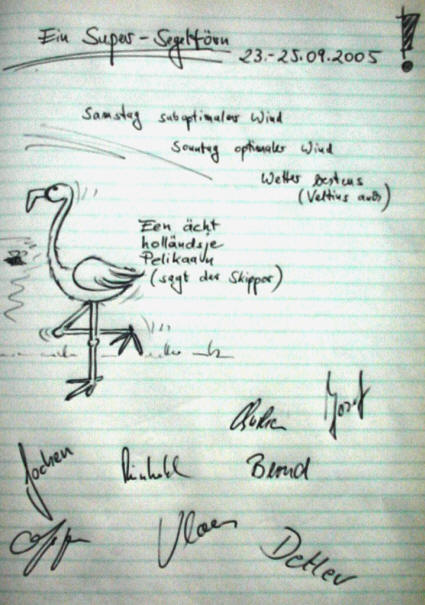 Ein Super-Segeltörn !
23.-25.09.2005
Samstag suboptimaler Wind
Sonntag optimaler Wind
Wetter bestens
(Veltins auch)
Een ächt
holländsje
Pelikaan
(sagt der Skipper)
Josef
Jochen
Reinhold
Bernd
Klaus
Detlev